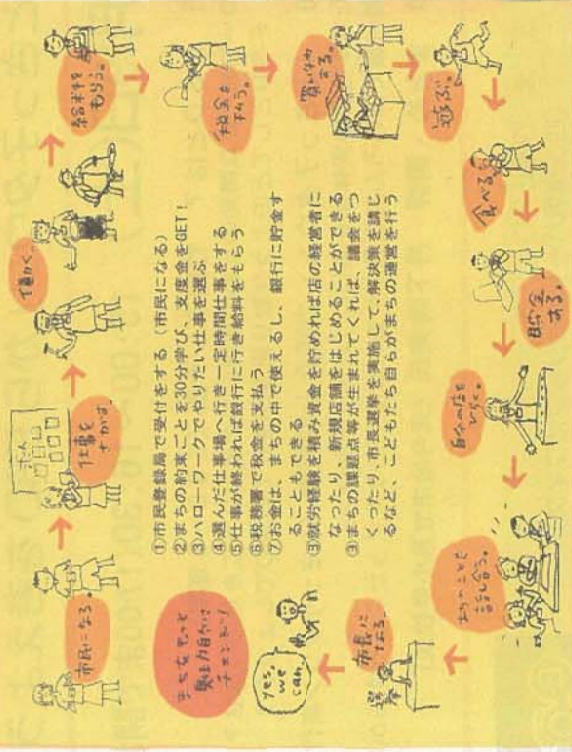 市民になる。
仕事をさがす。
働く。
給料をもらう。
税金を払う。
買い物する。
遊ぶ。
食べる。
貯金する。
自分の店をひらく。
まちのことを話し合う。
選挙
市長になる。
Yes, we can.
まちをもっと
魅力的に
チェンジ!
①市民登録局で受付をする(市民になる)
②まちの約束ごとを30分学び、支度金をGET!
③ハローワークでやりたい仕事を選ぶ
④選んだ仕事場へ行き一定時間仕事をする
⑤仕事が終われば銀行に行き給料をもらう
⑥税務署で税金を支払う
⑦お金は、まちの中で使えるし、銀行に貯金す
ることもできる
⑧就労経験を積み資金を貯めれば店の経営者に
なったり、新規店舗をはじめることができる
⑨まちの課題点等が生まれてくれば、議会をつ
くったり、市長選挙を実施して、解決策を講じ
るなど、こどもたち自らがまちの運営を行う